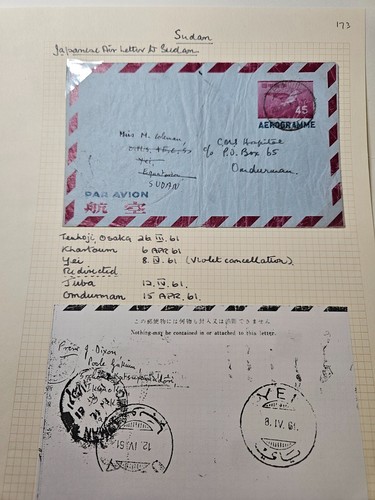 173
Sudan
Japanese Air Letter to Sudan.
45
AEROGRAMME
Miss M. Coleman
C.M.S.
Yei,
Equatoria
SUDAN
C.M.S. Hospital
c/o P.O. Box 65
Omdurman.
PAR AVION
航空
Tenkoji, Osaka 26 III 61
Khartoum 6 APR 61
Yei 8. IV. 61 (Violet cancellation)
Redirected
Juba 12. IV. 61.
Omdurman 15 APR. 61.
この郵便物には何物も封入又は添附できません
Nothing may be contained in or attached to this letter.
From J. Dixon
12 IV. 61
YEI
8. IV. 61.